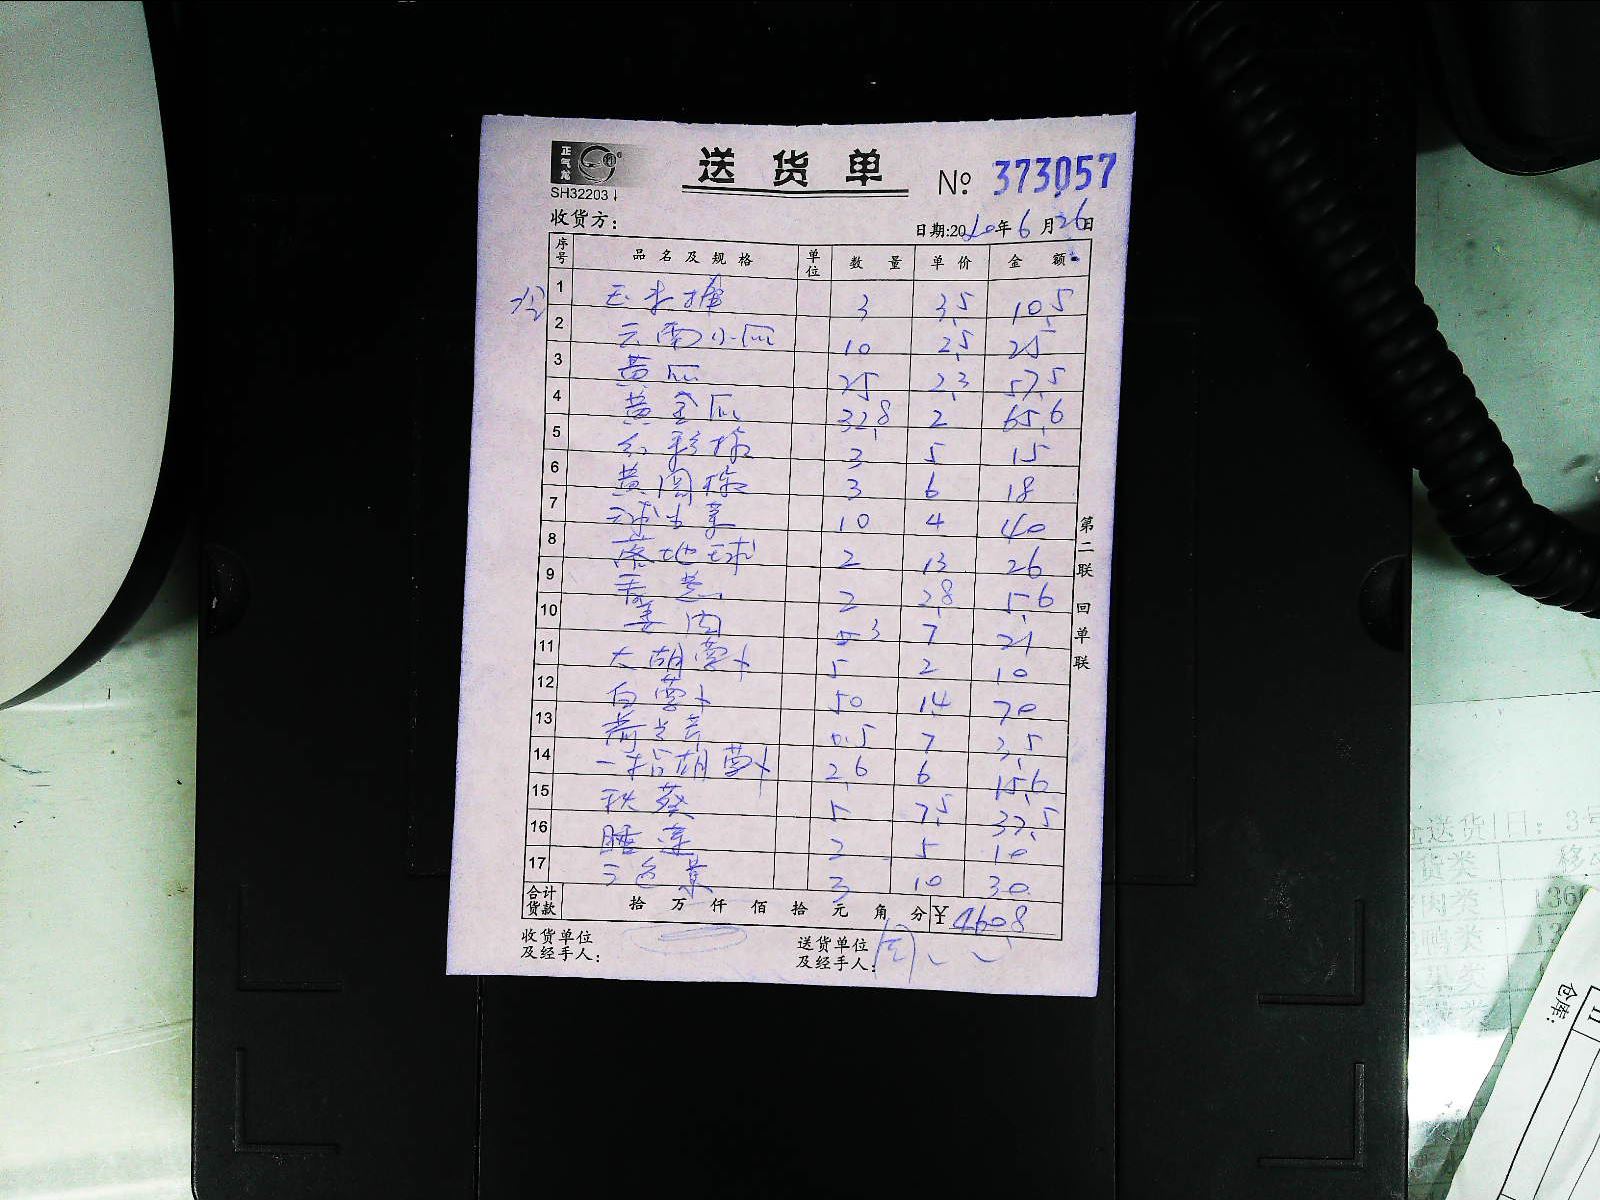 正气龙
SH32203
送货单
№ 373057
收货方：
日期：2020年6月26日
序号 品名及规格 单位 数量 单价 金额
冷
1 玉米插 3 3.5 10.5
2 云南小瓜 10 2.5 25
3 黄瓜 25 2.3 57.5
4 黄金瓜 32.8 2 65.6
5 红彩椒 3 5 15
6 黄圆椒 3 6 18
7 球生菜 10 4 40
8 落地球 2 13 26
9 香葱 2 2.8 5.6
10 姜肉 3 7 21
11 大胡萝卜 5 2 10
12 白萝卜 50 1.4 70
13 荷兰芹 0.5 7 3.5
14 一指胡萝卜 2.6 6 15.6
15 秋葵 5 7.5 37.5
16 睡莲 2 5 10
17 三色堇 3 10 30
合计货款 拾 万 仟 佰 拾 元 角 分 ¥460.8
收货单位及经手人：
送货单位及经手人：
第二联 回单联
送货 日：3号
货类
肉类 136
鸭类 13
仓库：